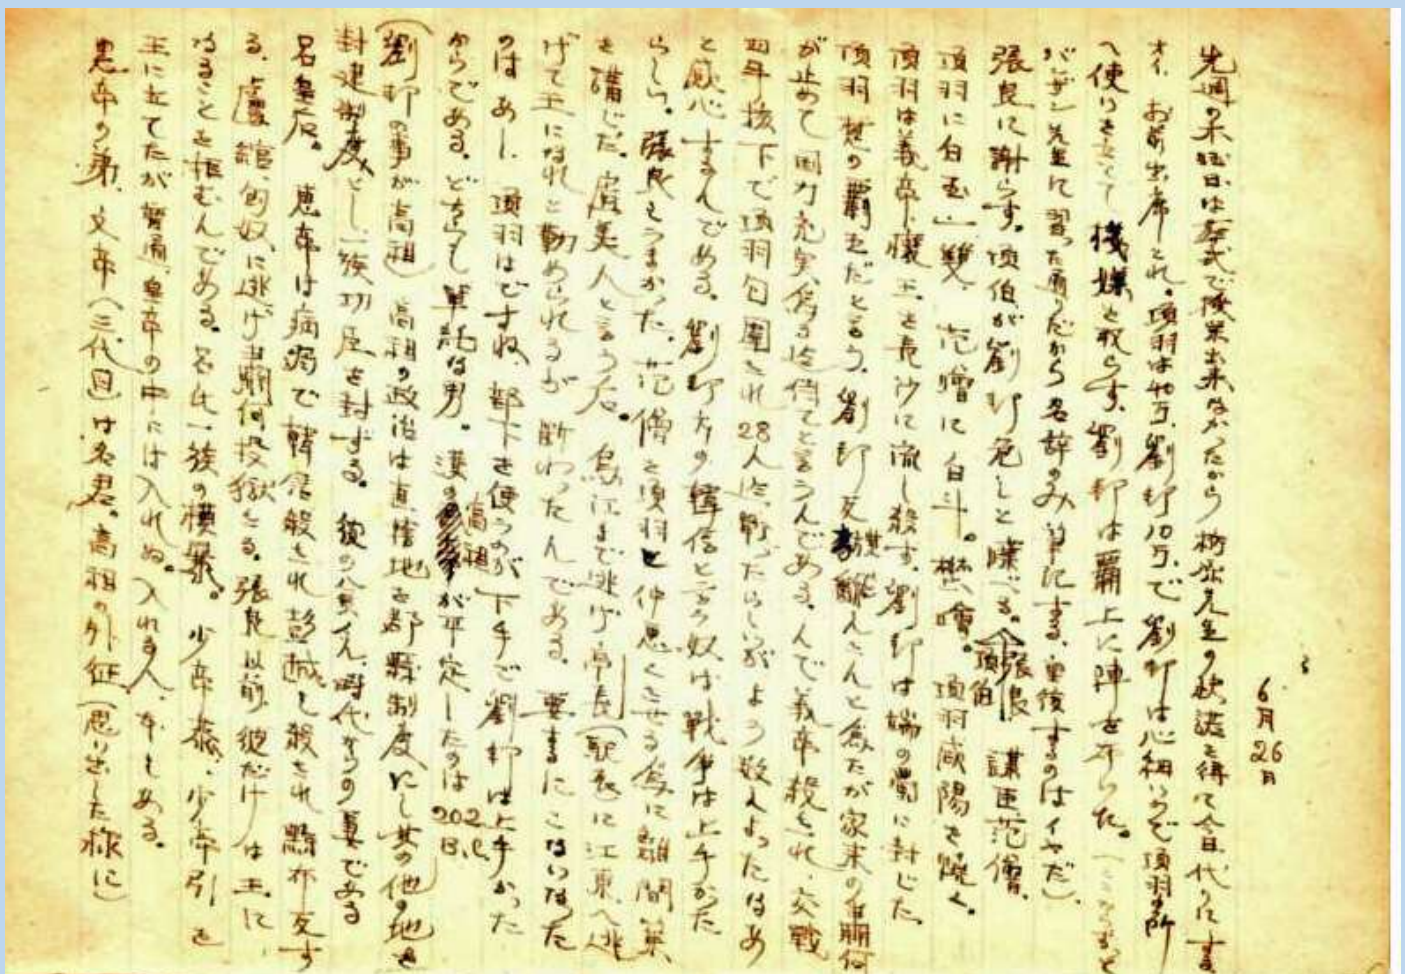 6月26日
先週の木曜日は葬式で授業出来なかったから 先生の 承諾を得て今日代りにする
オイ、お前出席とれ。項羽は40万、劉邦10万、で劉邦は心細いので項羽の所
へ使いを立てて機嫌を取らす、劉邦は覇上に陣を 布いた。
バサン先生に習った通りだから名辞のみ にする、重複するのはイヤだ)
張良に謝らす。項伯が劉邦危しと 述べる。項伯 張良 謀臣范増、
項羽に白玉一双 范増に白斗。樊噲。項羽咸陽を焼く。
項羽は義帝、懐王、を長沙に流し殺す、劉邦は端の蜀に封じた
項羽 楚の覇王だと言う、劉邦反旗 んと 為たが家来の蕭何
が止めて国力充実 る迄待てと言うんである、んで義帝殺され、交戦
四年垓下で項羽包囲され28人迄戦ったらしいが よう数えよったなあ
と感心するんである。劉邦方の韓信と言う奴は戦争は上手かった
らしい。張良もうまかった。范増を項羽と仲悪くさせる為に離間策
を講じた。虞美人と言う 。烏江まで逃げ亭長(駅長)に江東へ逃
げて王になれと勧められるが 断わったんである。要するにこないなった
のはあし、項羽はですね、部下を使うのが下手で劉邦は上手かった
からである。どちらも 軍 は男。漢の高祖が平定したのは202B.C.
(劉邦の事が高祖) 高祖の政治は直轄地を郡県制度にし其の他の地を
封建制度とし一族功臣を封ずる。 時代からの妻である
名 皇后。恵帝は病弱で韓信殺され彭越も殺され黥布反す
る、盧綰匈奴に逃げ蕭何投獄さる。張良 以前、彼だけは王に
なることを拒むんである。呂氏一族の横暴。少帝恭、少帝弘を
王に立てたが普通、皇帝の中には入れぬ。入れる人、もある。
恵帝の弟、文帝(三代目)は名君。高祖の外征(思い出した様に)